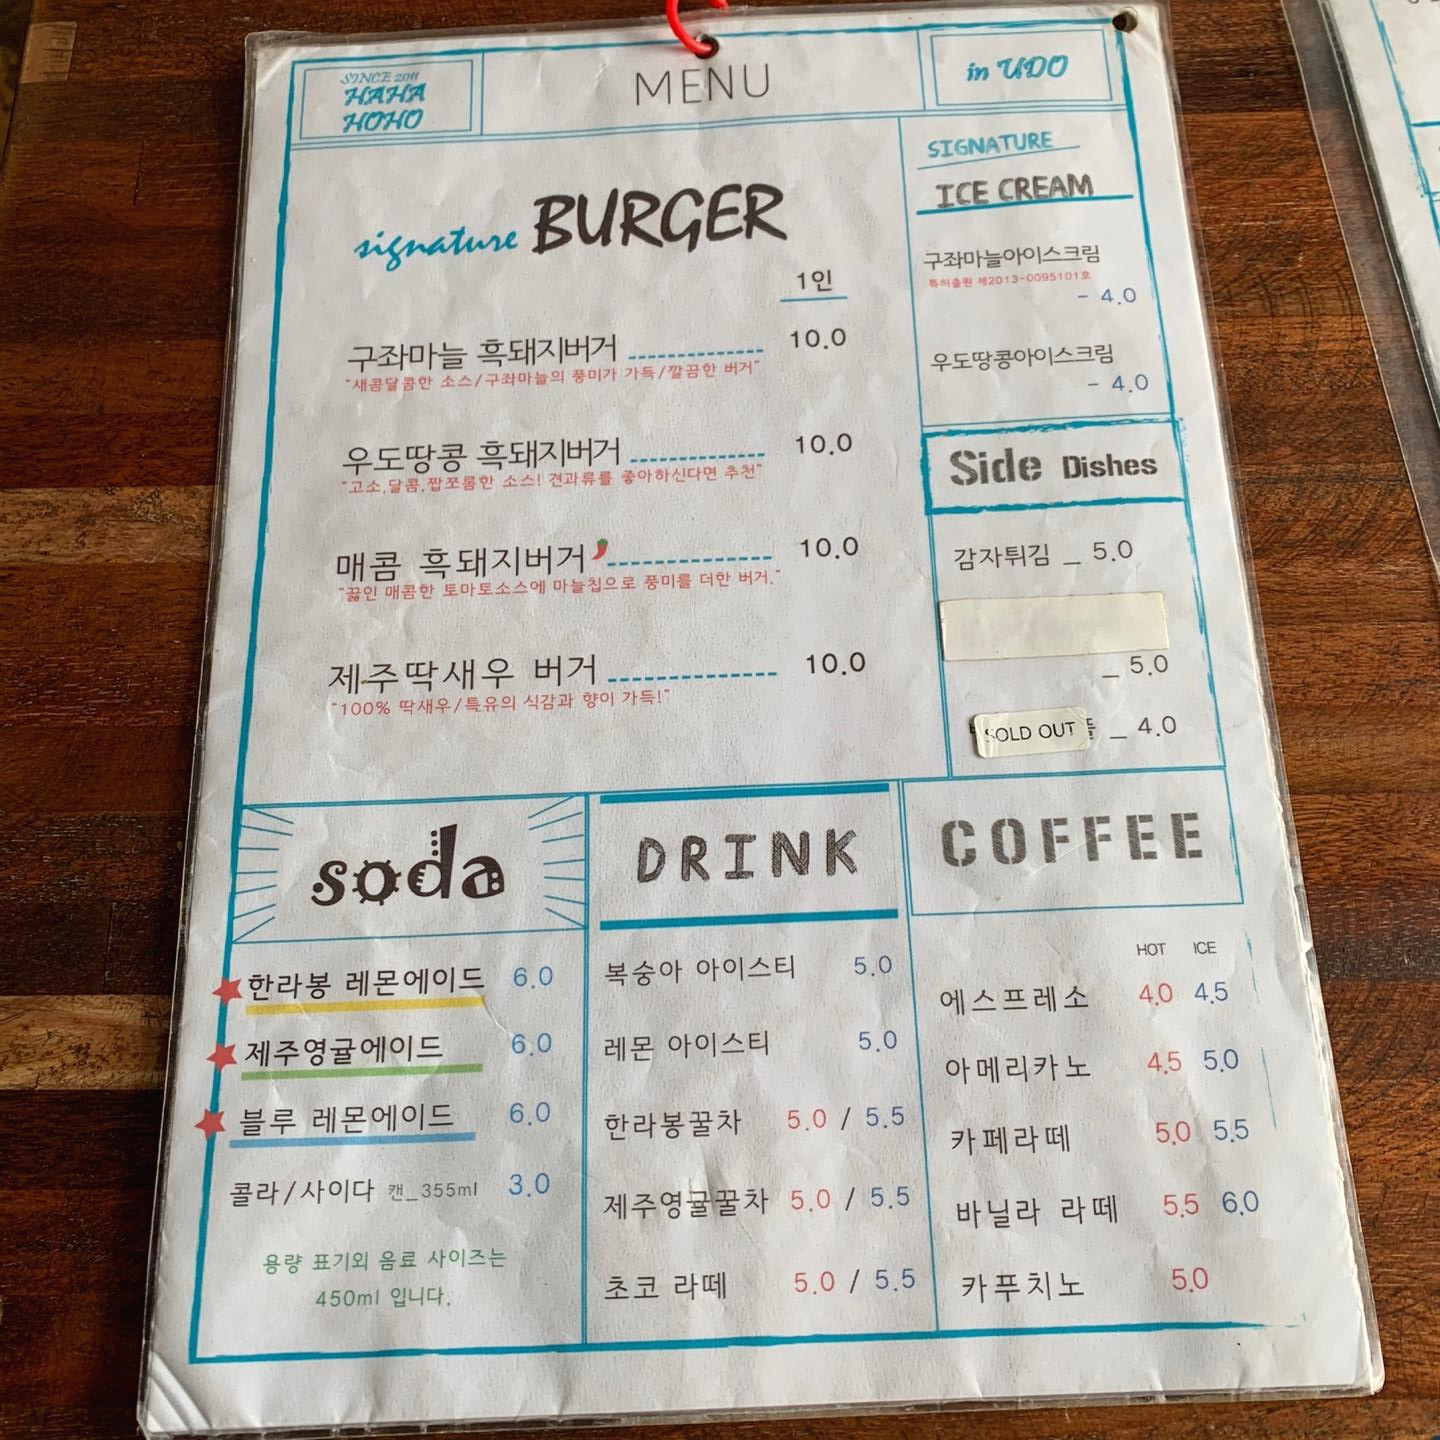 SINCE 2011
HAHA
HOHO
MENU
in UDO
signature BURGER
1인
구좌마늘 흑돼지버거 10.0
"새콤달콤한 소스/구좌마늘의 풍미가 가득/깔끔한 버거"
우도땅콩 흑돼지버거 10.0
"고소,달콤,짭쪼롬한 소스! 견과류를 좋아하신다면 추천"
매콤 흑돼지버거 10.0
"끓인 매콤한 토마토소스에 마늘칩으로 풍미를 더한 버거."
제주딱새우 버거 10.0
"100% 딱새우/특유의 식감과 향이 가득!"
SIGNATURE
ICE CREAM
구좌마늘아이스크림
특허출원 제2013-0095101호
- 4.0
우도땅콩아이스크림
- 4.0
Side Dishes
감자튀김 _ 5.0
_ 5.0
SOLD OUT _ 4.0
soda
한라봉 레몬에이드 6.0
제주영귤에이드 6.0
블루 레몬에이드 6.0
콜라/사이다 캔_355ml 3.0
용량 표기외 음료 사이즈는
450ml 입니다.
DRINK
복숭아 아이스티 5.0
레몬 아이스티 5.0
한라봉꿀차 5.0 / 5.5
제주영귤꿀차 5.0 / 5.5
초코 라떼 5.0 / 5.5
COFFEE
HOT ICE
에스프레소 4.0 4.5
아메리카노 4.5 5.0
카페라떼 5.0 5.5
바닐라 라떼 5.5 6.0
카푸치노 5.0